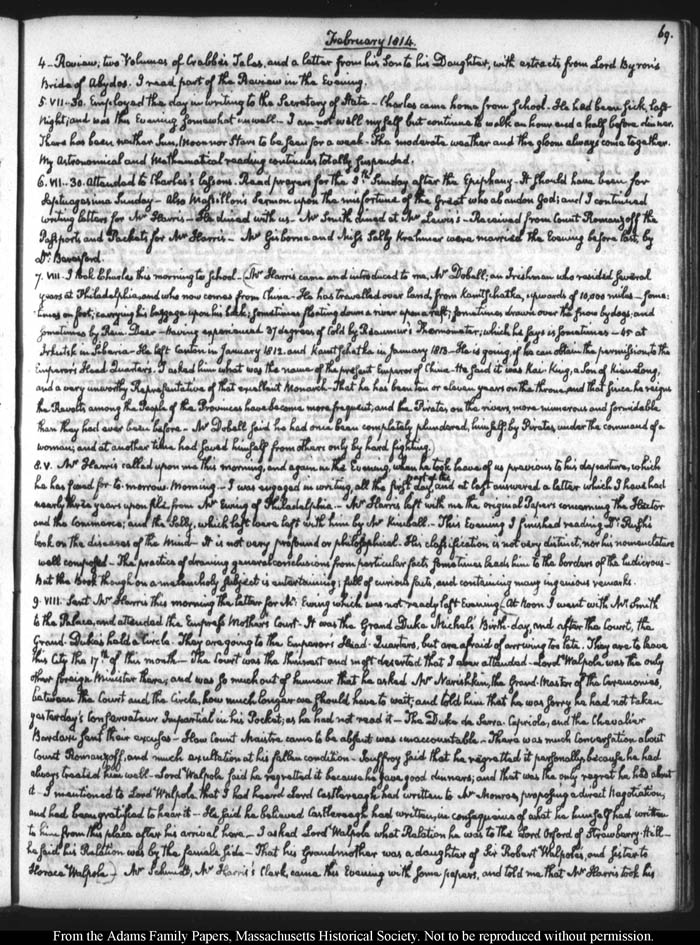 69.
February 1814.
4_ Review, two Volumes of Crabbe's Tales, and a letter from his Son to his Daughter, with extracts from Lord Byron's
Bride of Abydos. I read part of the Review in the Evening.
5. VII..30. Employed the day in writing to the Secretary of State_ Charles came home from School. He had been sick last
Night, and was this Evening somewhat unwell_ I am not well myself but continue to walk an hour and a half before dinner.
There has been neither Sun, Moon nor Stars to be seen for a week. The moderate weather and the gloom always come together.
My Astronomical and Mathematical reading continues totally suspended.
6. VII..30. Attended to Charles's lessons. Read prayers for the 5th. Sunday after the Epiphany. It should have been for
Septuagesima Sunday_ Also Massillon's Sermon upon the misfortune of the Great who abandon God; and I continued
writing letters for Mr Harris_ He dined with us_ Mr Smith dined at Mr Lewis's_ Received from Count Romanzoff the
Passports and Packets for Mr Harris_ Mr Gisborne and Miss Sally Krehmer were married the Evening before last, by
Dr. Beresford.
7. VIII. I took Charles this morning to School_ (Mr Harris came and introduced to me, Mr Dobell; an Irishman who resided several
years at Philadelphia, and who now comes from China_ He has travelled over land, from Kamtschatka, upwards of 10,000 miles_ some:
times on foot; carrying his baggage upon his back; sometimes floating down a river upon a raft; sometimes drawn over the snow by dogs; and
sometimes by Rein-Deer_ Having experienced 37 degrees of Cold by Reaumur's Thermometer; which he says is sometimes_ 45 at
Irkutsk in Siberia_ He left Canton in January 1812. and Kamtschatka in January 1813_ He is going, if he can obtain the permission, to the
Emperor's Head Quarters. I asked him what was the name of the present Emperor of China. He said it was Kai-King, a Son of Kien Long,
and a very unworthy Representative of that excellent Monarch_ That he has been ten or eleven years on the throne, and that since he reigns
the Revolts among the People of the Provinces have become more frequent, and the Pirates on the rivers, more numerous and formidable
than they had ever been before_ Mr Dobell said he had once been completely plundered, himself, by Pirates, under the command of a
woman; and at another time had saved himself from others only by hard fighting.)
8. V. Mr Harris called upon me this morning, and again in the Evening, when he took leave of us previous to his departure, which
he has fixed for to-morrow Morning_ I was engaged in writing, all the first part of the day, and at last answered a letter which I have had
nearly three years upon file from Mr Ewing of Philadelphia_ Mr Harris left with me the original Papers concerning the Hector
and the Commerce; and the Polly, which last were left with him by Mr Kimball_ This Evening I finished reading Dr. Rush's
book on the diseases of the Mind_ It is not very profound or philosophical. His classification is not very distinct, nor his nomenclature
well composed_ The practice of drawing general conclusions from particular facts, sometimes leads him to the borders of the ludicrous_
But the Book though on a melancholy subject is entertaining; full of curious facts, and containing many ingenious remarks.
9. VIII. Sent Mr Harris this morning the letter for Mr Ewing which was not ready last Evening. (At Noon I went with Mr Smith
to the Palace, and attended the Empress Mother's Court. It was the Grand Duke Michel's Birth-day, and after the Court, the
Grand-Dukes held a Circle. They are going to the Emperor's Head-Quarters, but are afraid of arriving too late. They are to leave
this City the 17th. of this month_ The Court was the thinnest and most deserted that I ever attended_ Lord Walpole was the only
other foreign Minister there; and was so much out of humour that he asked Mr Narishkin, the Grand-Master of the Ceremonies,
between the Court and the Circle, how much longer we should have to wait; and told him that he was sorry he had not taken
yesterday's Conservateur Impartial in his Pocket; as he had not read it_ The Duke de Serra-Capriola, and the Chevalier
Bardaxi sent their excuses_ How Count Maistre came to be absent was unaccountable_ There was much Conversation about
Count Romanzoff, and much exultation at his fallen condition_ Jouffroy said that he regretted it personally because he had
always treated him well_ Lord Walpole said he regretted it because he gave good dinners; and that was the only regret he had about
it_ I mentioned to Lord Walpole, that I had heard Lord Castlereagh had written to Mr Monroe, proposing a direct Negotiation,
and had been gratified to hear it_ He said he believed Castlereagh had written, in consequence of what he himself had written
to him from this place after his arrival here_ I asked Lord Walpole what Relation he was to the Lord Orford of Strawberry-Hill_
he said his Relation was by the female side_ That his Grandmother was a daughter of Sir Robert Walpole's, and Sister to
Horace Walpole_) Mr Schmidt, Mr Harris's Clerk, came this Evening with some papers, and told me that Mr Harris took his
From the Adams Family Papers, Massachusetts Historical Society. Not to be reproduced without permission.